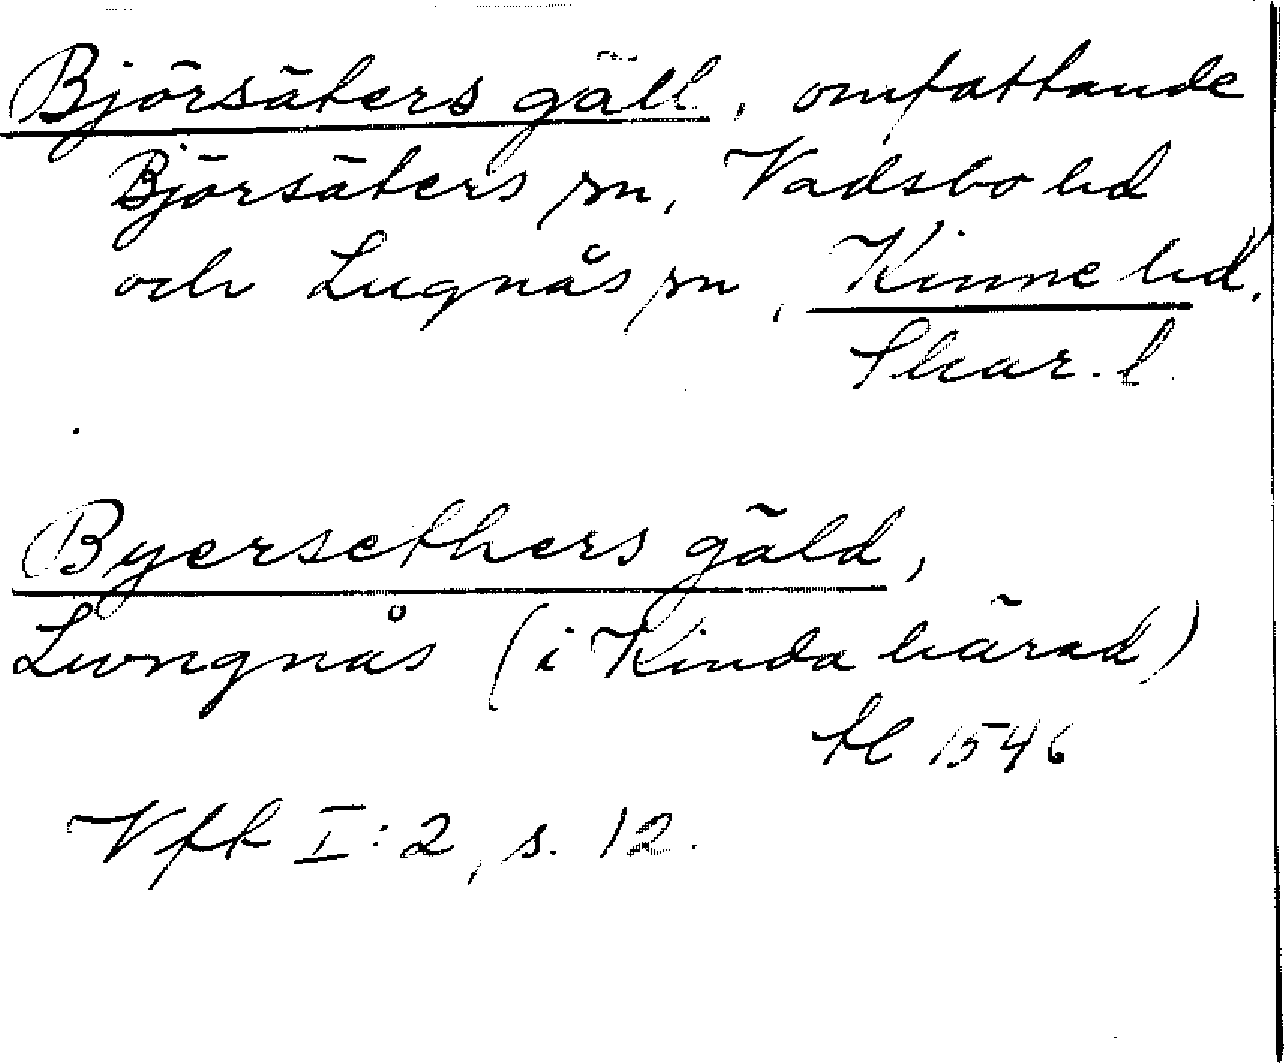 Björsäters gäll, omfattande
Björsäters sn, Vadsbo hd
och Lugnås sn, Kinne hd.
Skar. l.
Byersethers gäld,
Lwngnås (i Kinda härad)
tl 1546
Vfk I:2, s. 12.